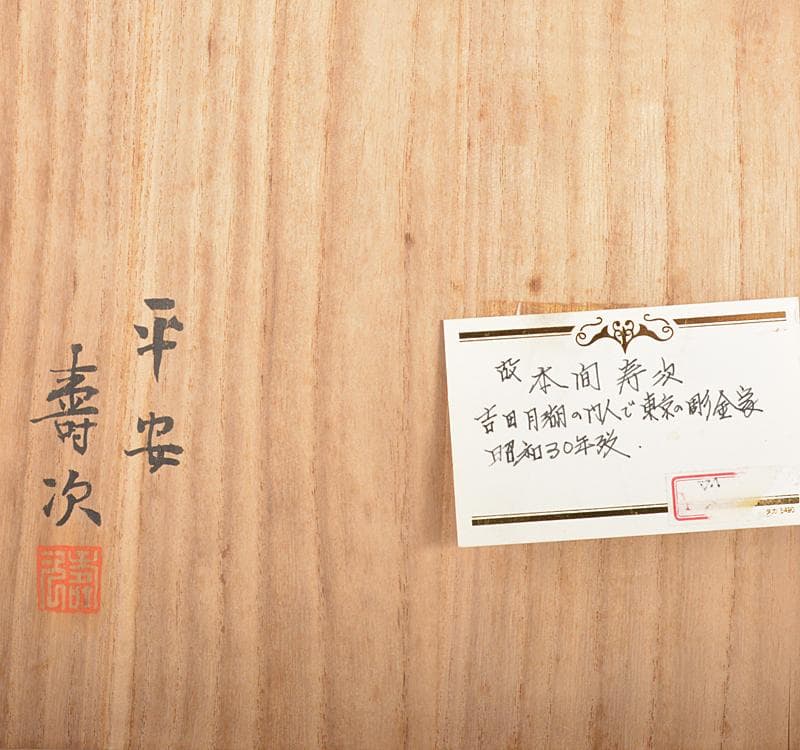 平安
壽次
故 本間寿次
吉田月の門人で東京の彫金家
昭和30年
5490